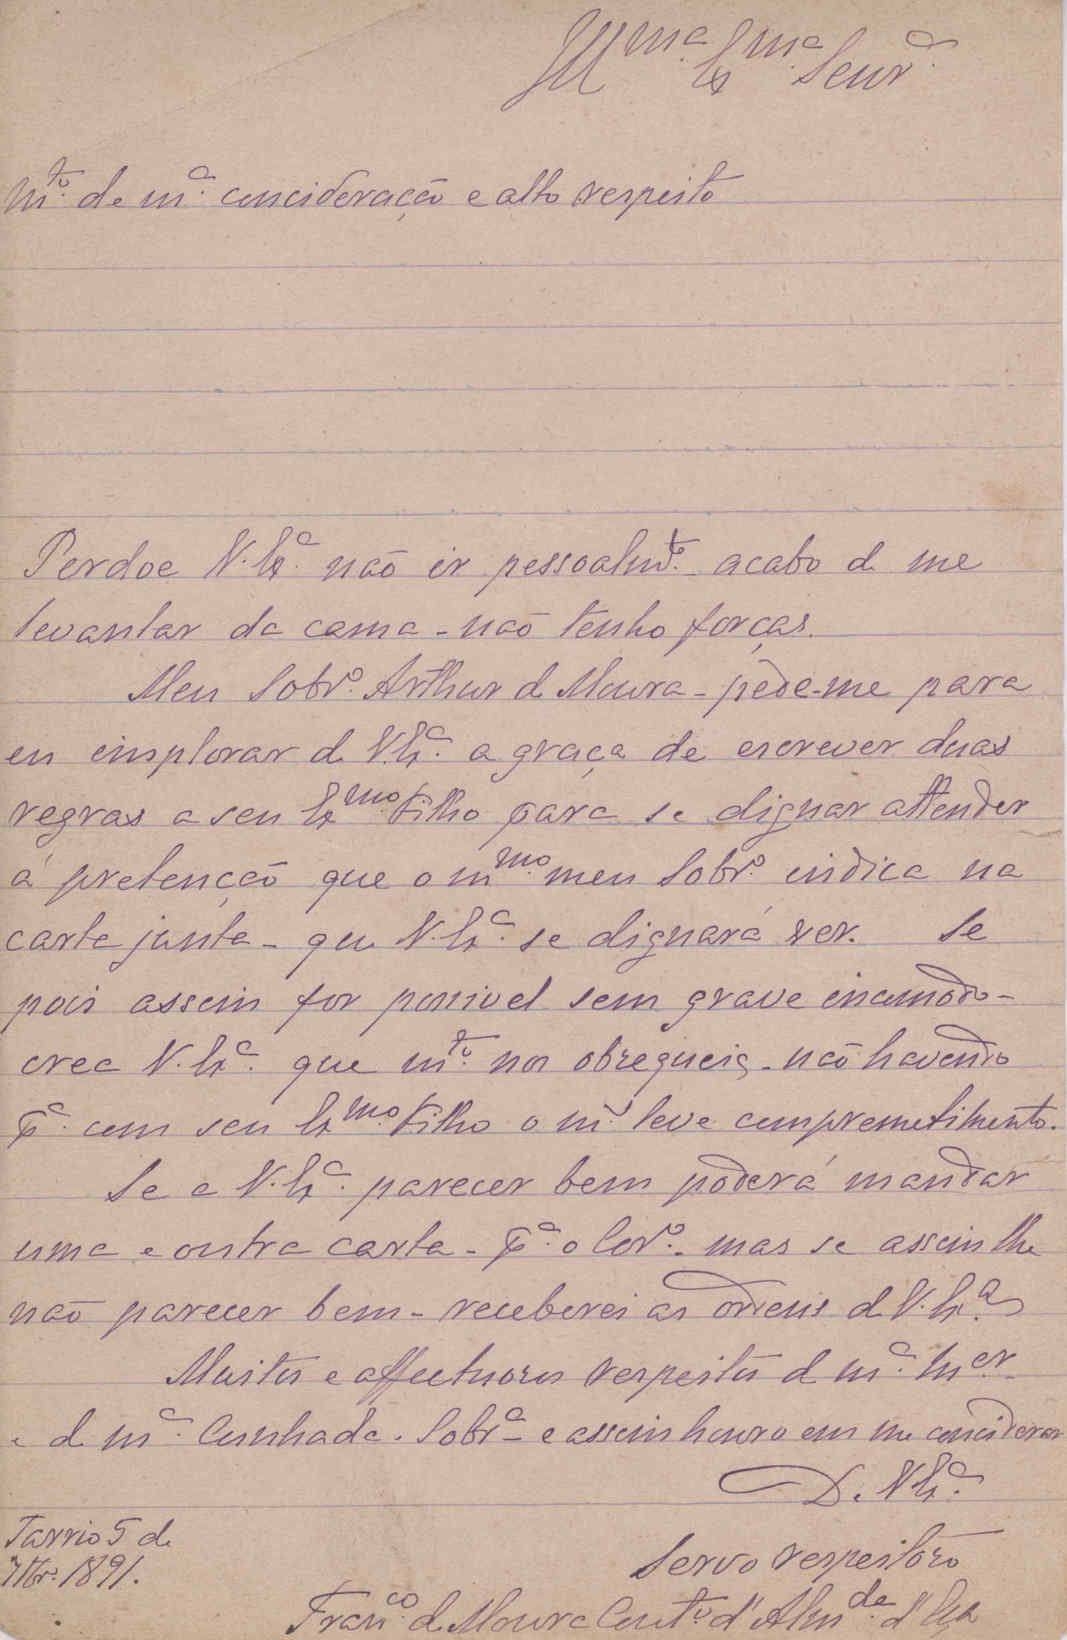 Ill.ma Ex.ma Senr.a
M.to de m.a concideração e alto respeito
Perdoe V. Ex.a não ir pessoalm.te acabo d me
levantar da cama - não tenho forças.
Meu Sobr.o Arthur d Moura - pede-me para
eu implorar d V. Ex.a a graça de escrever duas
regras a seu Ex.mo Filho para se dignar attender
á pretenção que o m.mo meu Sobr.o indica na
carta junta - que V. Ex.a se dignará ver. Se
pois assim for possivel sem grave incomodo -
crea V. Ex.a que m.to nos obzequeia - não havendo
p.a com seu Ex.mo Filho o m. leve comprometimento.
Se a V. Ex.a parecer bem poderá mandar
uma e outra carta - p.a o Cor.o - mas se assim lhe
não parecer bem - receberei as ordens d V. Ex.a
Muitos e affectuozos respeitos d m.a m.er
e d m.a Cunhada - Sobr.a - e assim honro em me conciderar
D. V. Ex.a
Tarrio 5 d
7br.o 1891.
Servo respeitozo
Fran.co d Moura Cout.o d'Alm.da d'Eça